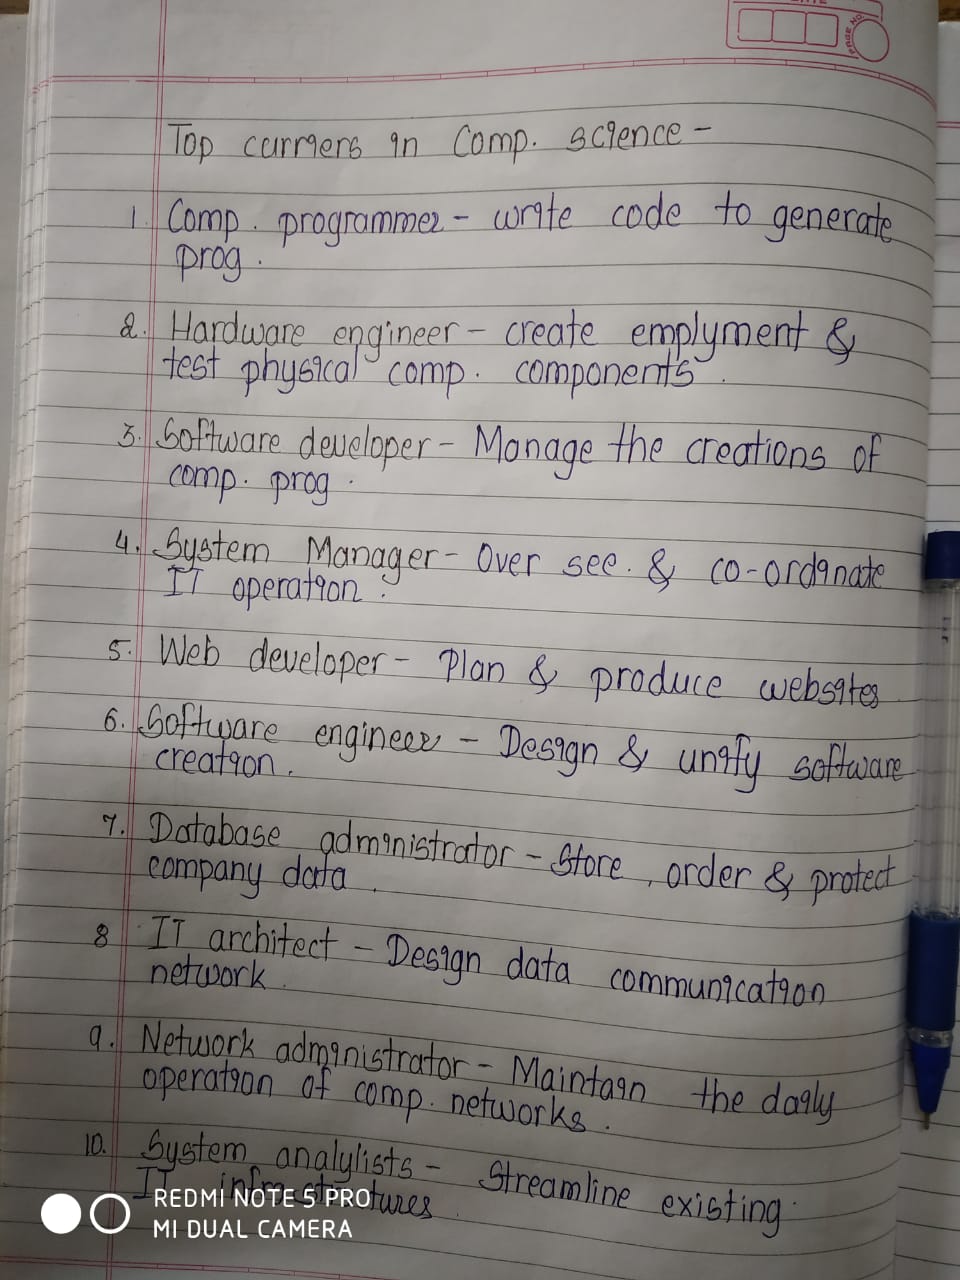 PAGE NO.
Top carriers in Comp. science -
1. Comp. programmer - write code to generate
prog.
2. Hardware engineer - create emplyment &
test physical comp. components.
3. Software developer - Manage the creations of
comp. prog.
4. System Manager - Over see. & co-ordinate
IT operation.
5. Web developer - Plan & produce websites
6. Software engineer - Design & unify software
creation.
7. Database administrator - Store, order & protect
company data.
8 IT architect - Design data communication
network.
9. Network administrator - Maintain the daily
operation of comp. networks.
10. System analylists - Streamline existing
IT infra structures.
REDMI NOTE 5 PRO
MI DUAL CAMERA